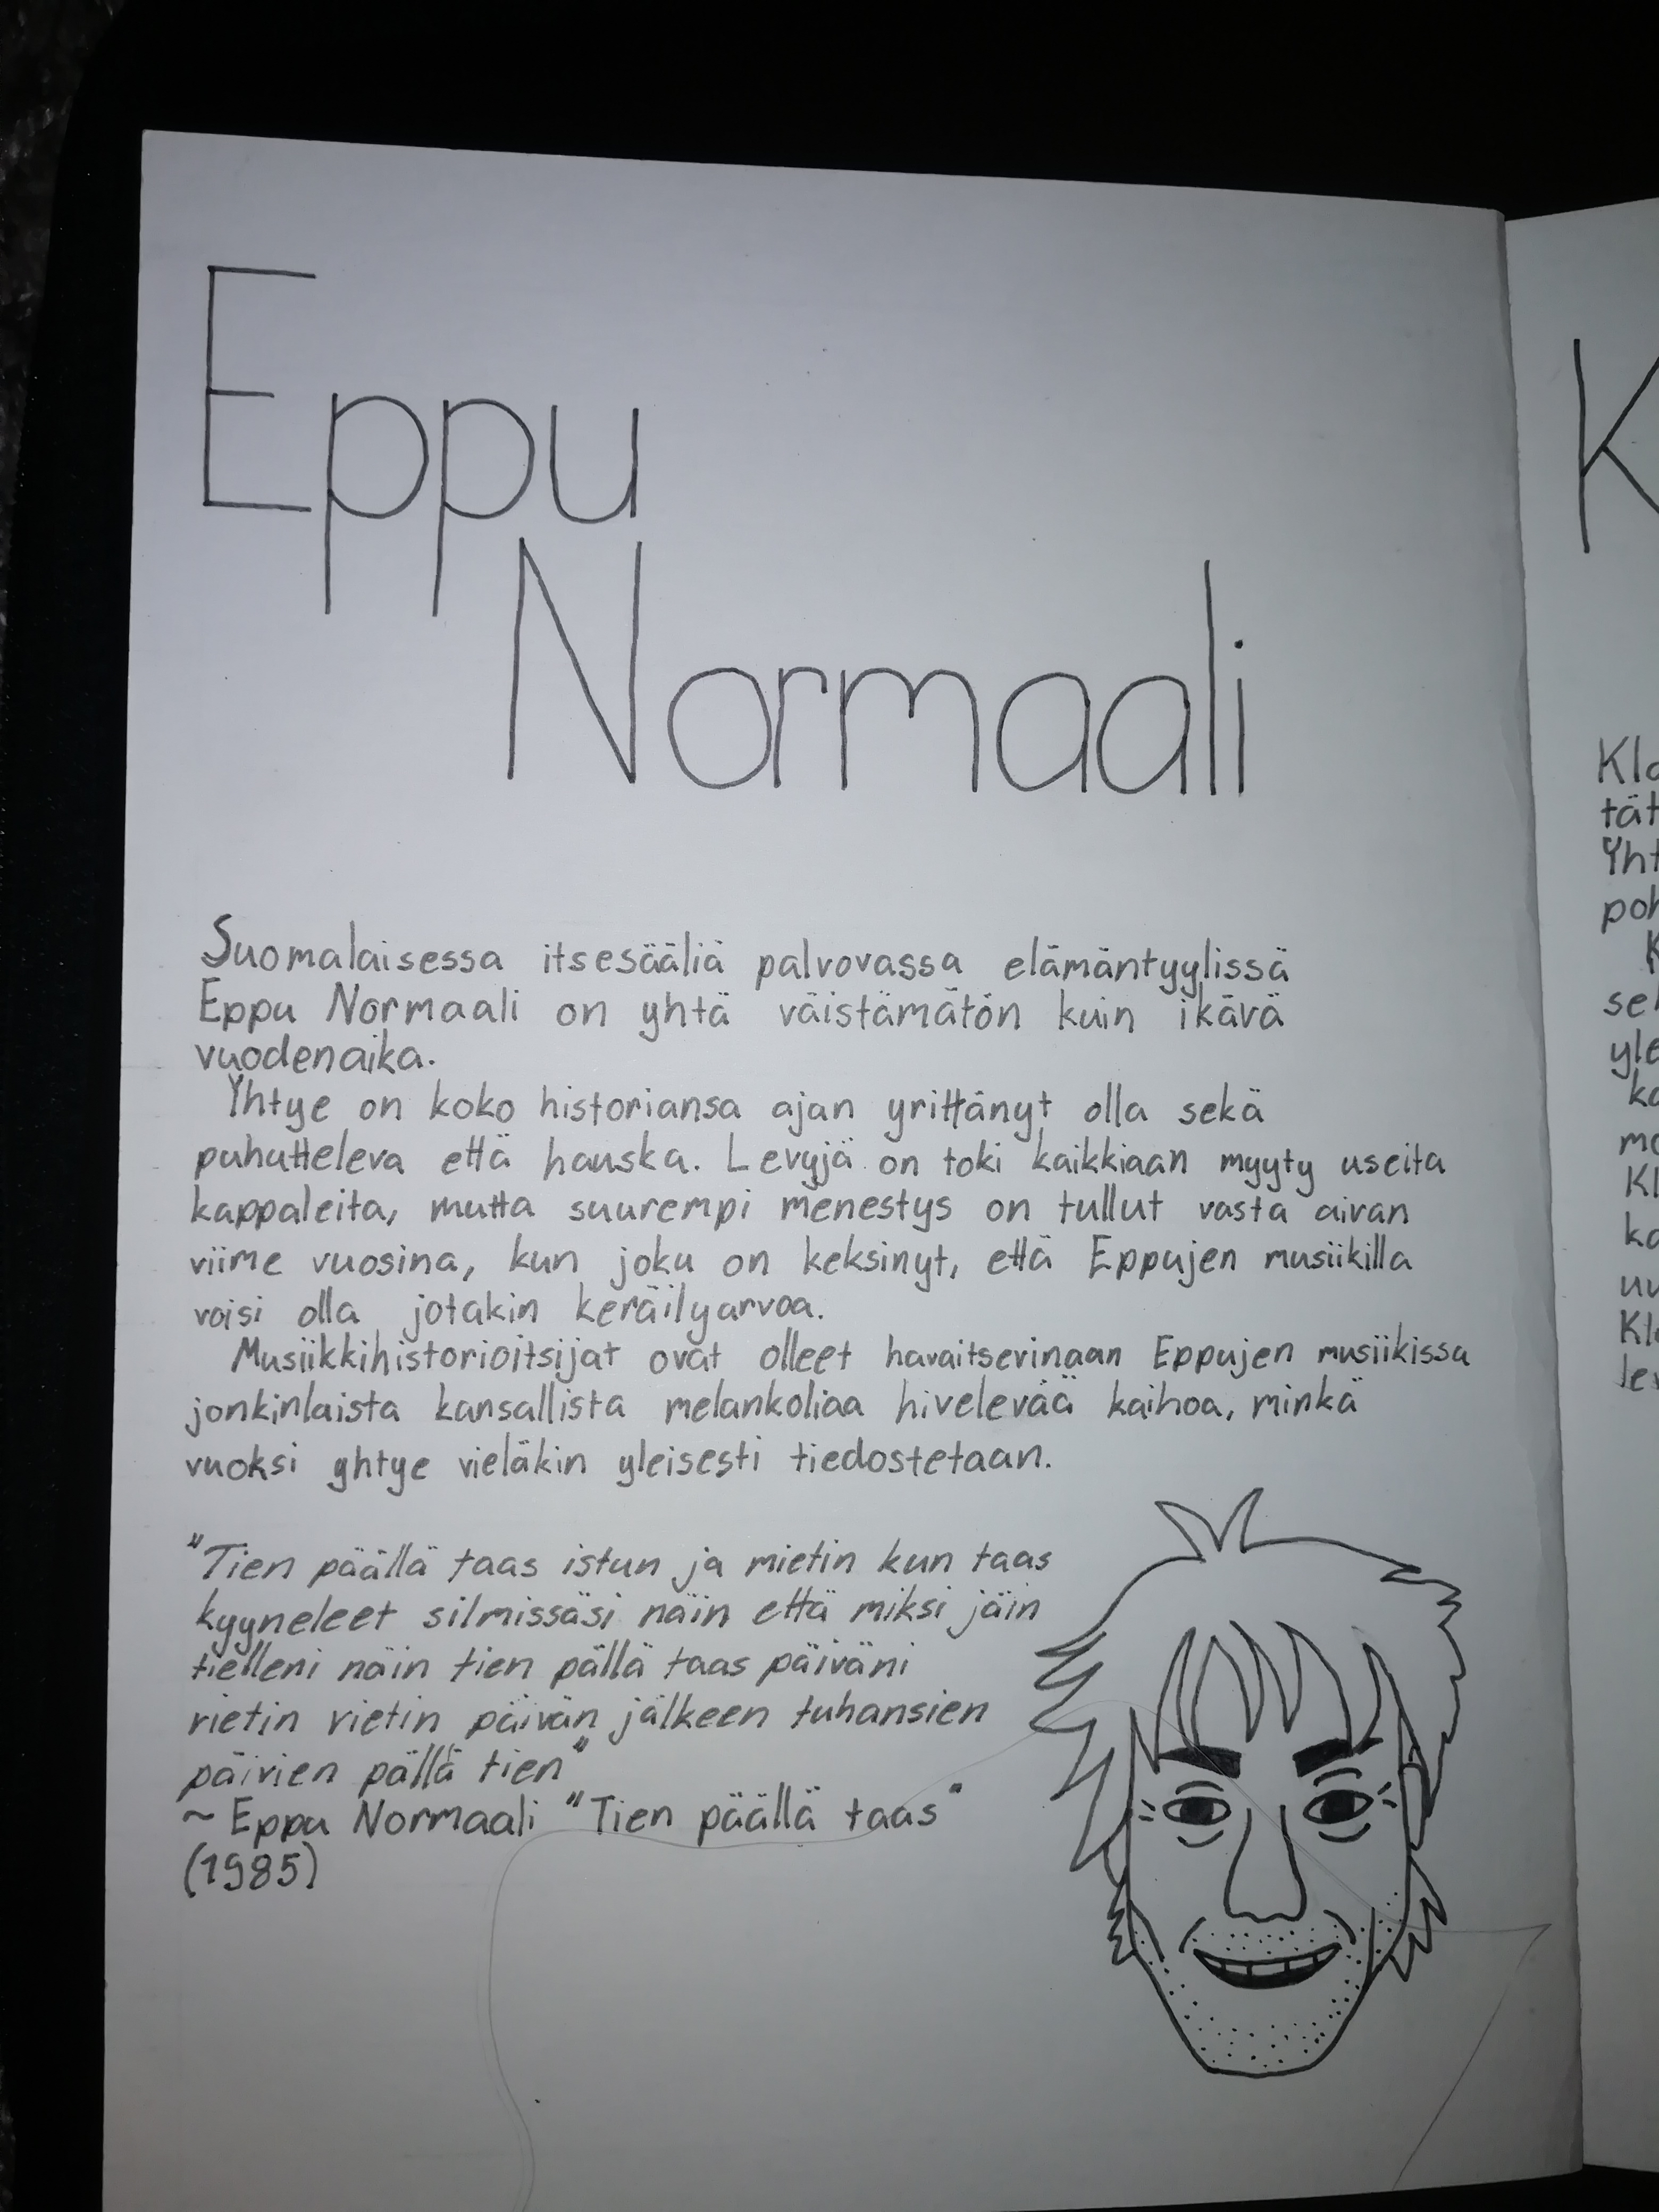 Eppu
Normaali
Suomalaisessa itsesääliä palvovassa elämäntyylissä
Eppu Normaali on yhtä väistämätön kuin ikävä
vuodenaika.
Yhtye on koko historiansa ajan yrittänyt olla sekä
puhutteleva että hauska. Levyjä on toki kaikkiaan myyty useita
kappaleita, mutta suurempi menestys on tullut vasta aivan
viime vuosina, kun joku on keksinyt, että Eppujen musiikilla
voisi olla jotakin keräilyarvoa.
Musiikkihistorioitsijat ovat olleet havaitsevinaan Eppujen musiikissa
jonkinlaista kansallista melankoliaa hivelevää kaihoa, minkä
vuoksi yhtye vieläkin yleisesti tiedostetaan.
"Tien päällä taas istun ja mietin kun taas
kyyneleet silmissäsi näin että miksi jäin
tielleni näin tien pällä taas päiväni
vietin vietin päivän jälkeen tuhansien
päivien pällä tien"
~ Eppu Normaali "Tien päällä taas"
(1985)
K
Kla
tät
Yht
poh
K
sel
yle
ka
mo
Kl
ka
uu
Kla
lev